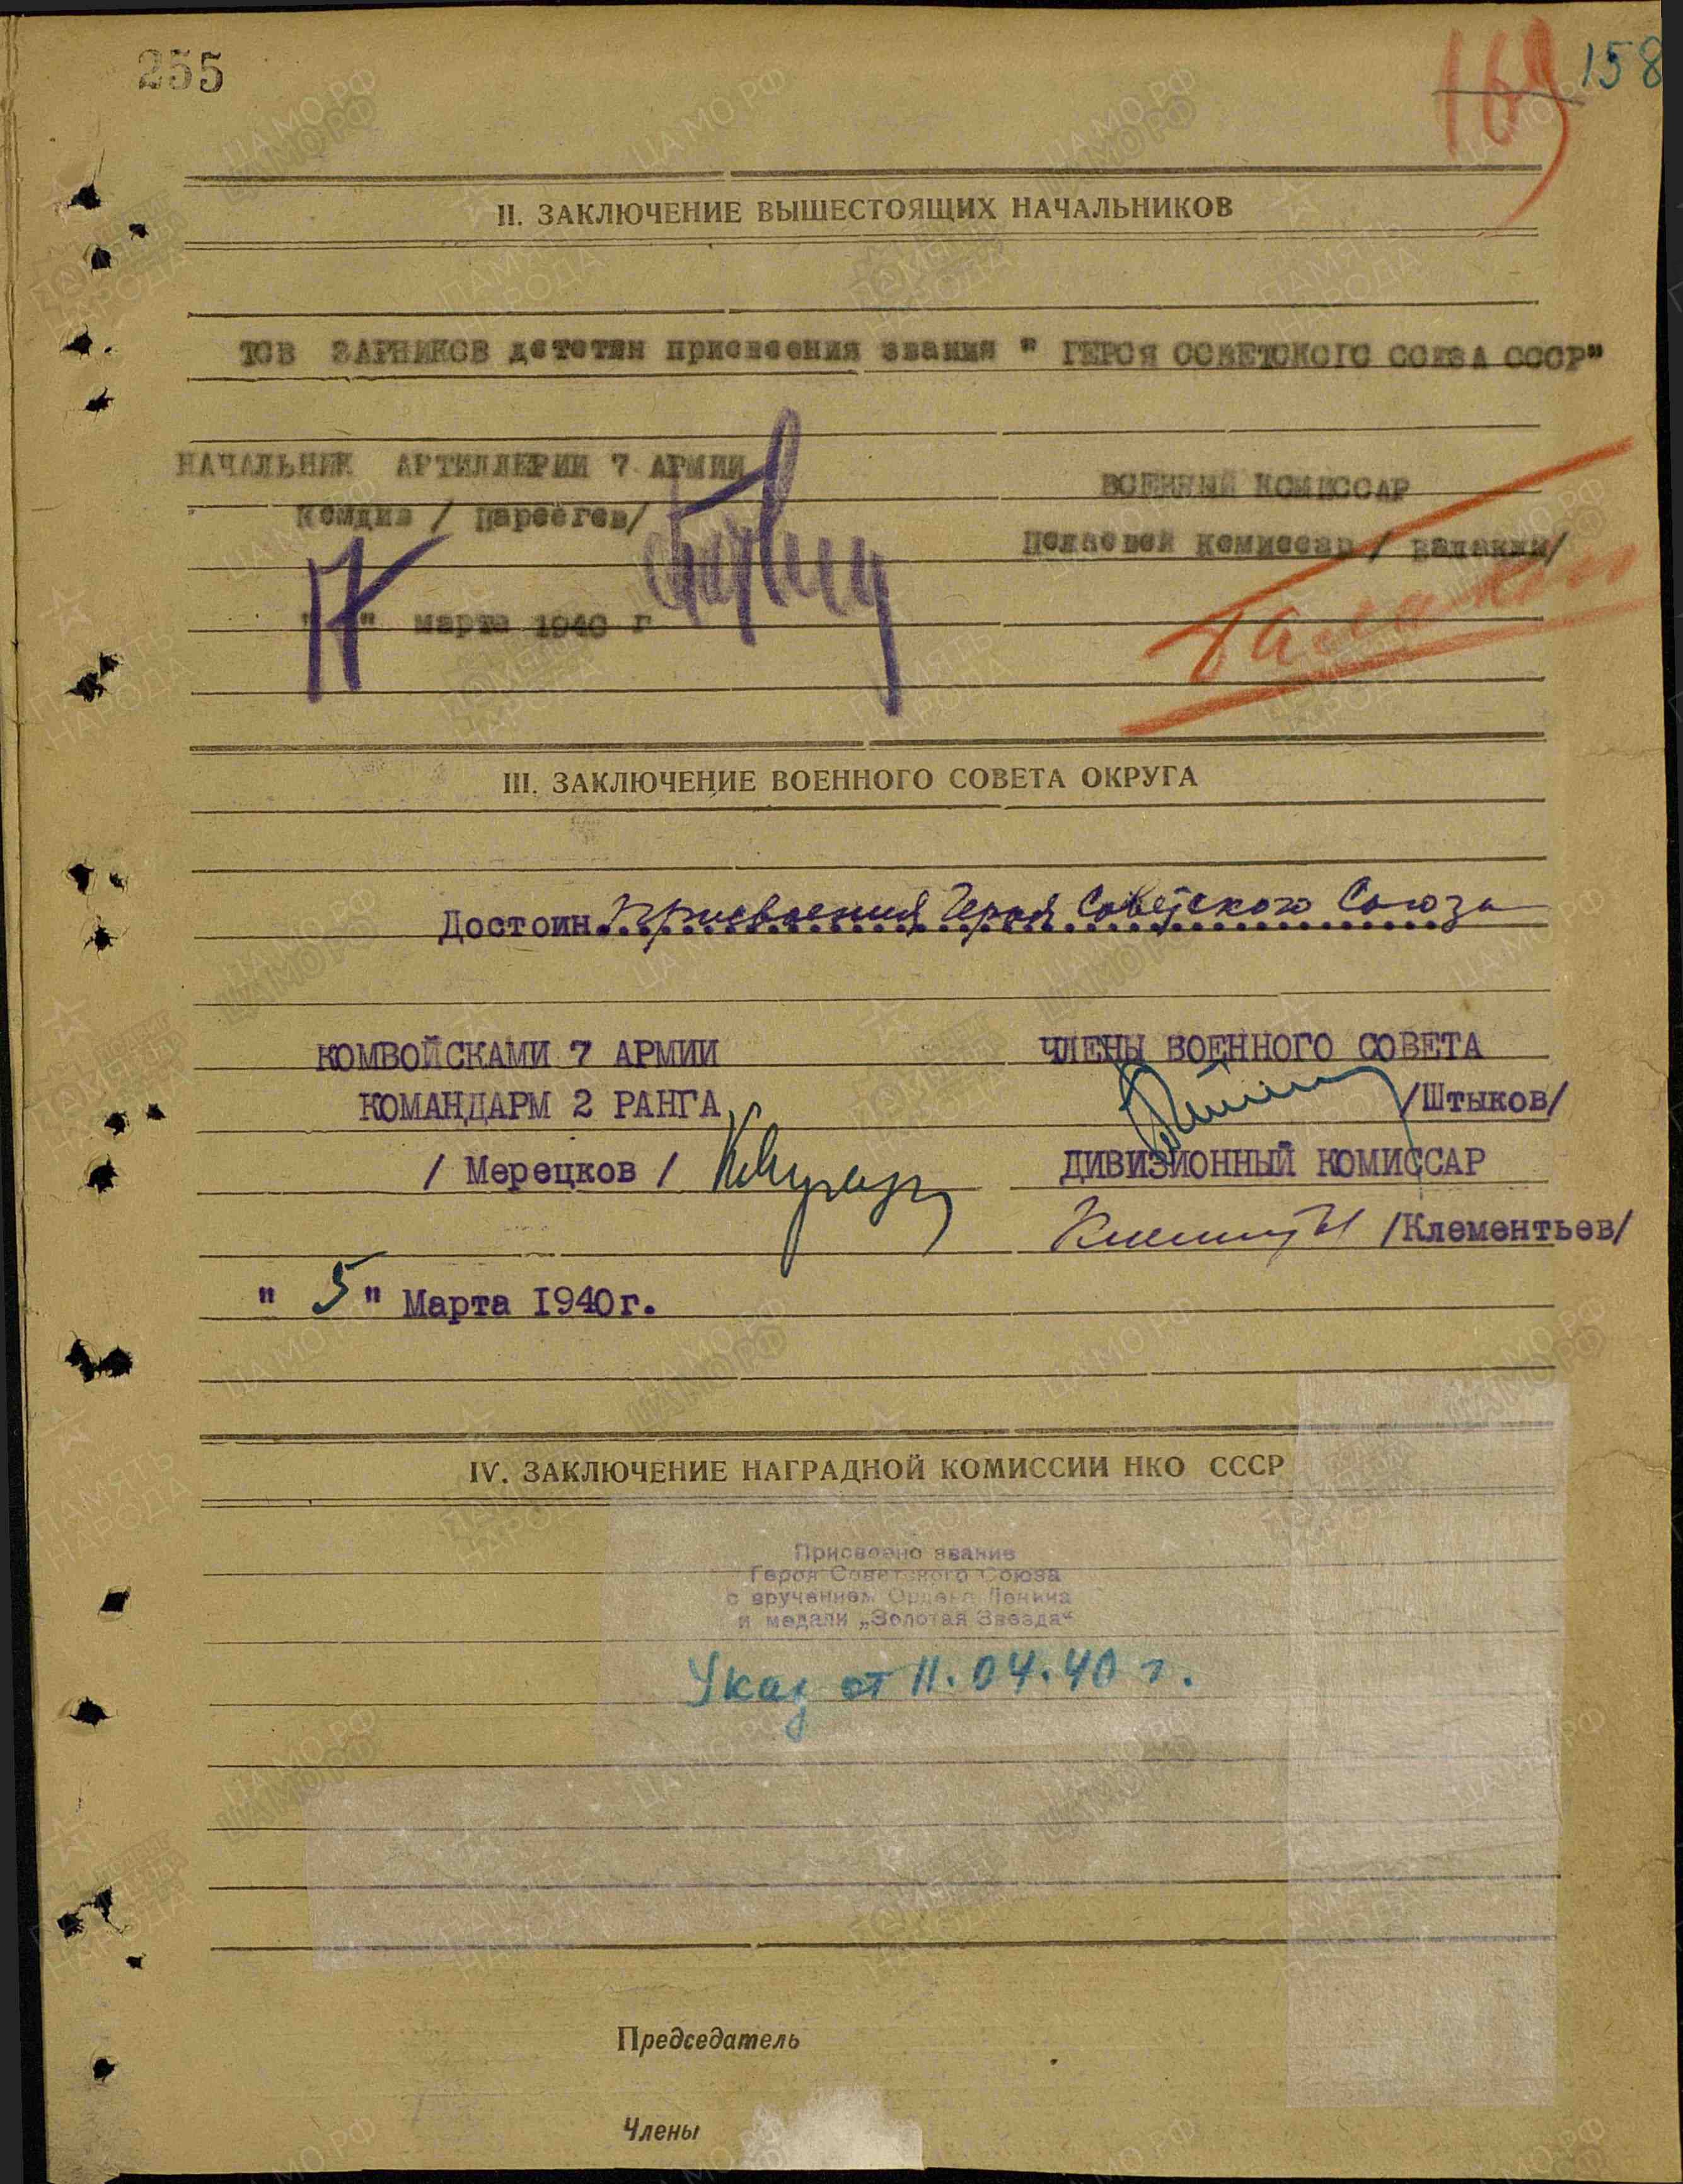 255
169 158
II. ЗАКЛЮЧЕНИЕ ВЫШЕСТОЯЩИХ НАЧАЛЬНИКОВ
ТОВ ЗАРНИКОВ детотин присвоения звания " ГЕРОЯ СОВЕТСКОГО СОЮЗА СССР"
НАЧАЛЬНИК АРТИЛЛЕРИИ 7 АРМИИ
Комдив / Парсегов/
ВОЕННЫЙ КОМИССАР
Полковой Комиссар / Балакин/
Балакин
" 17 " марта 1940 г
III. ЗАКЛЮЧЕНИЕ ВОЕННОГО СОВЕТА ОКРУГА
Достоин присвоения Героя Советского Союза
КОМВОЙСКАМИ 7 АРМИИ
КОМАНДАРМ 2 РАНГА
/ Мерецков /
ЧЛЕНЫ ВОЕННОГО СОВЕТА
/Штыков/
ДИВИЗИОННЫЙ КОМИССАР
/Клементьев/
" 5 " Марта 1940г.
IV. ЗАКЛЮЧЕНИЕ НАГРАДНОЙ КОМИССИИ НКО СССР
Присвоено звание
Героя Советского Союза
с вручением Ордена Ленина
и медали „Золотая Звезда“
Указ от 11.04.40 г.
Председатель
Члены